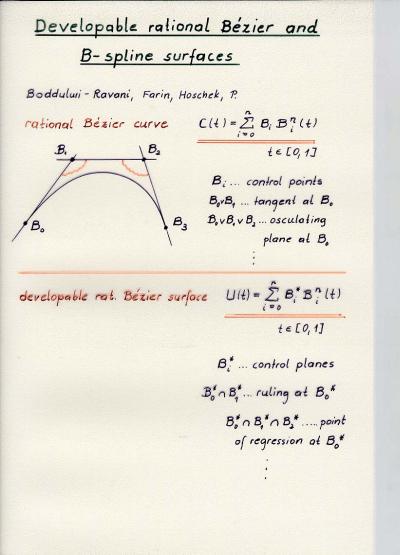 Developable rational Bézier and
B-spline surfaces
Bodduluri-Ravani, Farin, Hoschek, P.
rational Bézier curve
C(t) = Σ_{i=0}^{n} B_i B_i^n(t)
t ∈ [0,1]
B₁ B₂
B₀ B₃
B_i ... control points
B₀∨B₁ ... tangent at B₀
B₀∨B₁∨B₂ ... osculating
plane at B₀
⋮
developable rat. Bézier surface
U(t) = Σ_{i=0}^{n} B_i^* B_i^n(t)
t ∈ [0,1]
B_i^* ... control planes
B₀^* ∩ B₁^* ... ruling at B₀^*
B₀^* ∩ B₁^* ∩ B₂^* ..... point
of regression at B₀^*
⋮